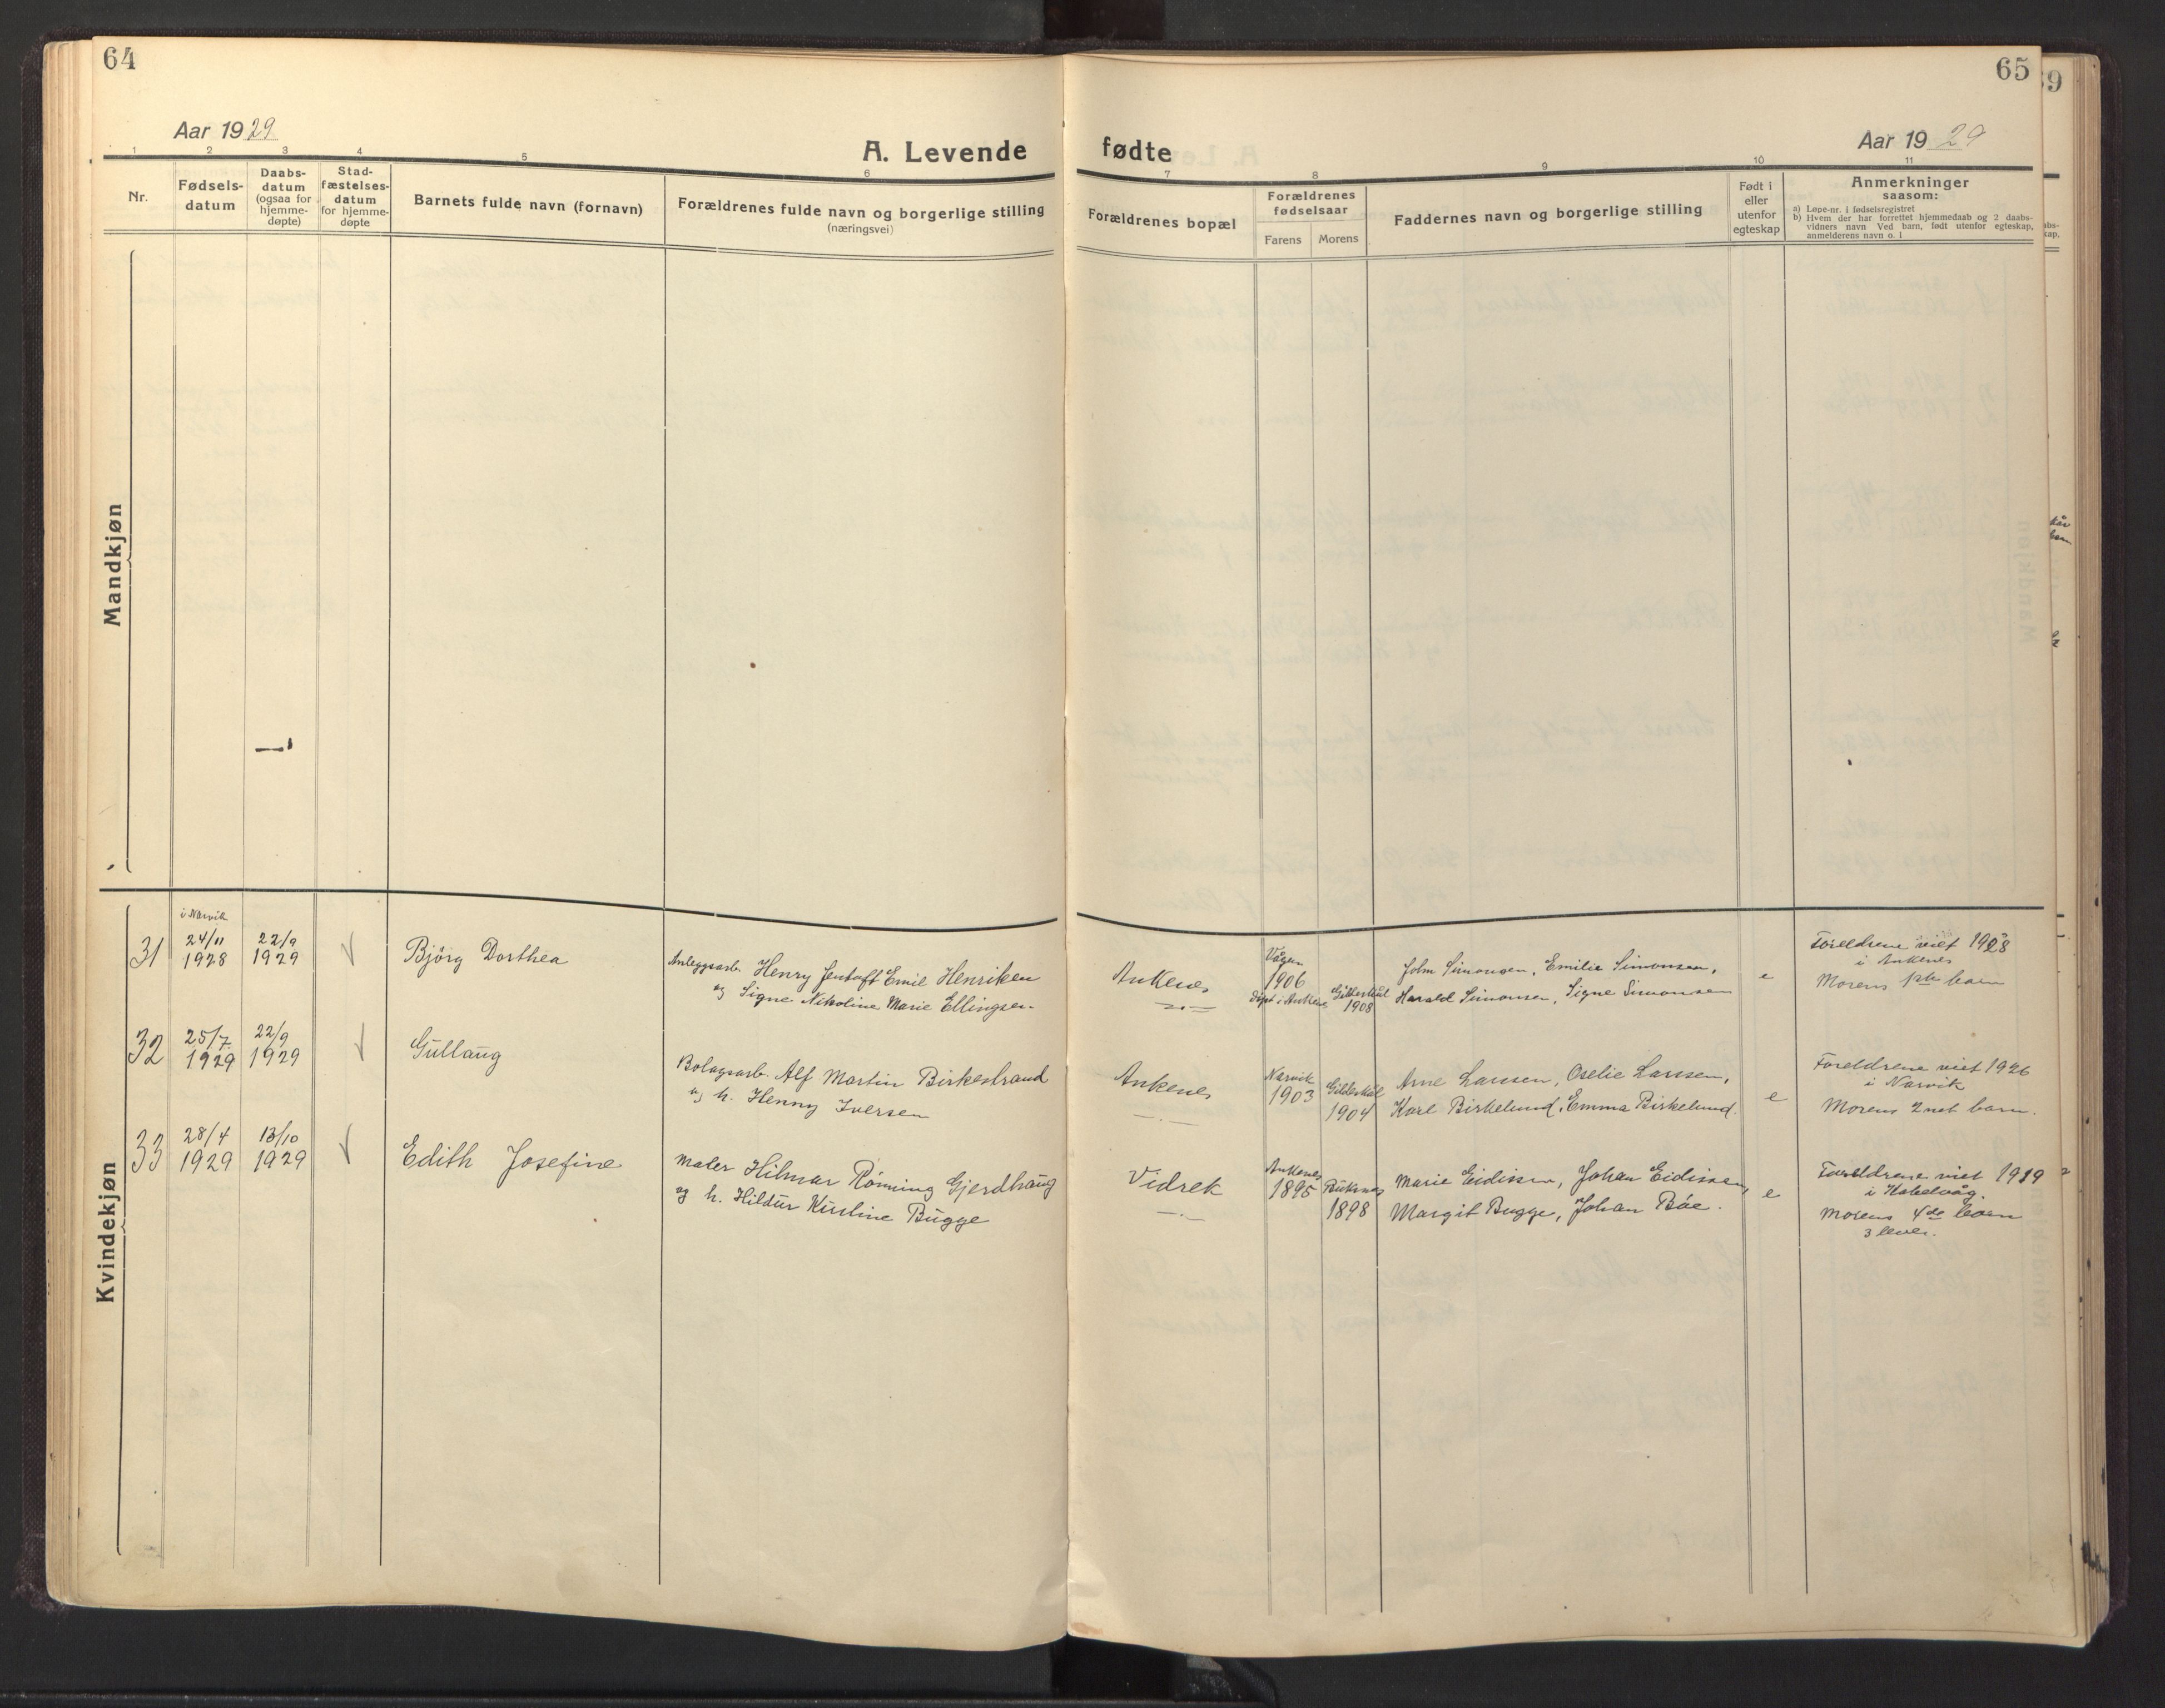 64
Aar 1929
A. Levende
1
2
3
4
5
6
Nr.
Fødsels-
datum
Daabs-
datum
(ogsaa for
hjemme-
døpte)
Stad-
fæstelses-
datum
for hjemme-
døpte
Barnets fulde navn (fornavn)
Forældrenes fulde navn og borgerlige stilling
(næringsvei)
Mandkjøn
Kvindekjøn
i Narvik
31
24/11
1928
22/9
1929
Bjørg Dorthea
Anleggsarb. Henry Jentoft Emil Henriken
og Signe Nikoline Marie Ellingsen.
32
25/7
1929
22/9
1929
Gullaug
Bolagsarb. Alf Martin Birkestrand
og h. Henny Iversen
33
28/4
1929
13/10
1929
Edith Josefine
Maler Hilmar Rönning Gjerdhaug
og h. Hildur Kirstine Bugge
65
89
Aar 1929
fødte
7
8
9
10
11
Forældrenes bopæl
Forældrenes
fødselsaar
Farens
Morens
Faddernes navn og borgerlige stilling
Født i
eller
utenfor
egteskap
Anmerkninger
saasom:
a) Løpe-nr. i fødselsregistret
b) Hvem der har forrettet hjemmedaab og 2 daabs-
vidners navn Ved barn, født utenfor egteskap,
anmelderens navn o. l
Ankenes
Vågan
1906
døpt i Ankenes
Gildeskål
1908
John Simonsen, Emilie Simonsen,
Harald Simonsen, Signe Simonsen
e
Foreldrene viet 1928
i Ankenes
Morens 1ste barn
Ankenes
Narvik
1903
Gildeskål
1904
Arne Larssen, Oselie Larssen,
Karl Birkelund, Emma Birkelund.
e
Foreldrene viet 1926
i Narvik
Morens 2net barn.
Vidrek
Ankenes
1895
Buksnes
1898
Marie Eidissen, Johan Eidissen,
Margit Bugge, Johan Böe.
e
Foreldrene viet 1919
i Kabelvåg.
Morens 4de barn
3 lever.